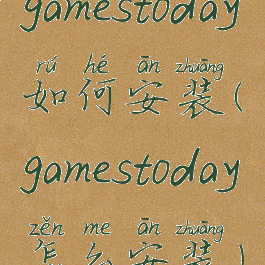 gamestoday
rú hé ān zhuāng
如何安装(
gamestoday
zěn me ān zhuāng
怎么安装)